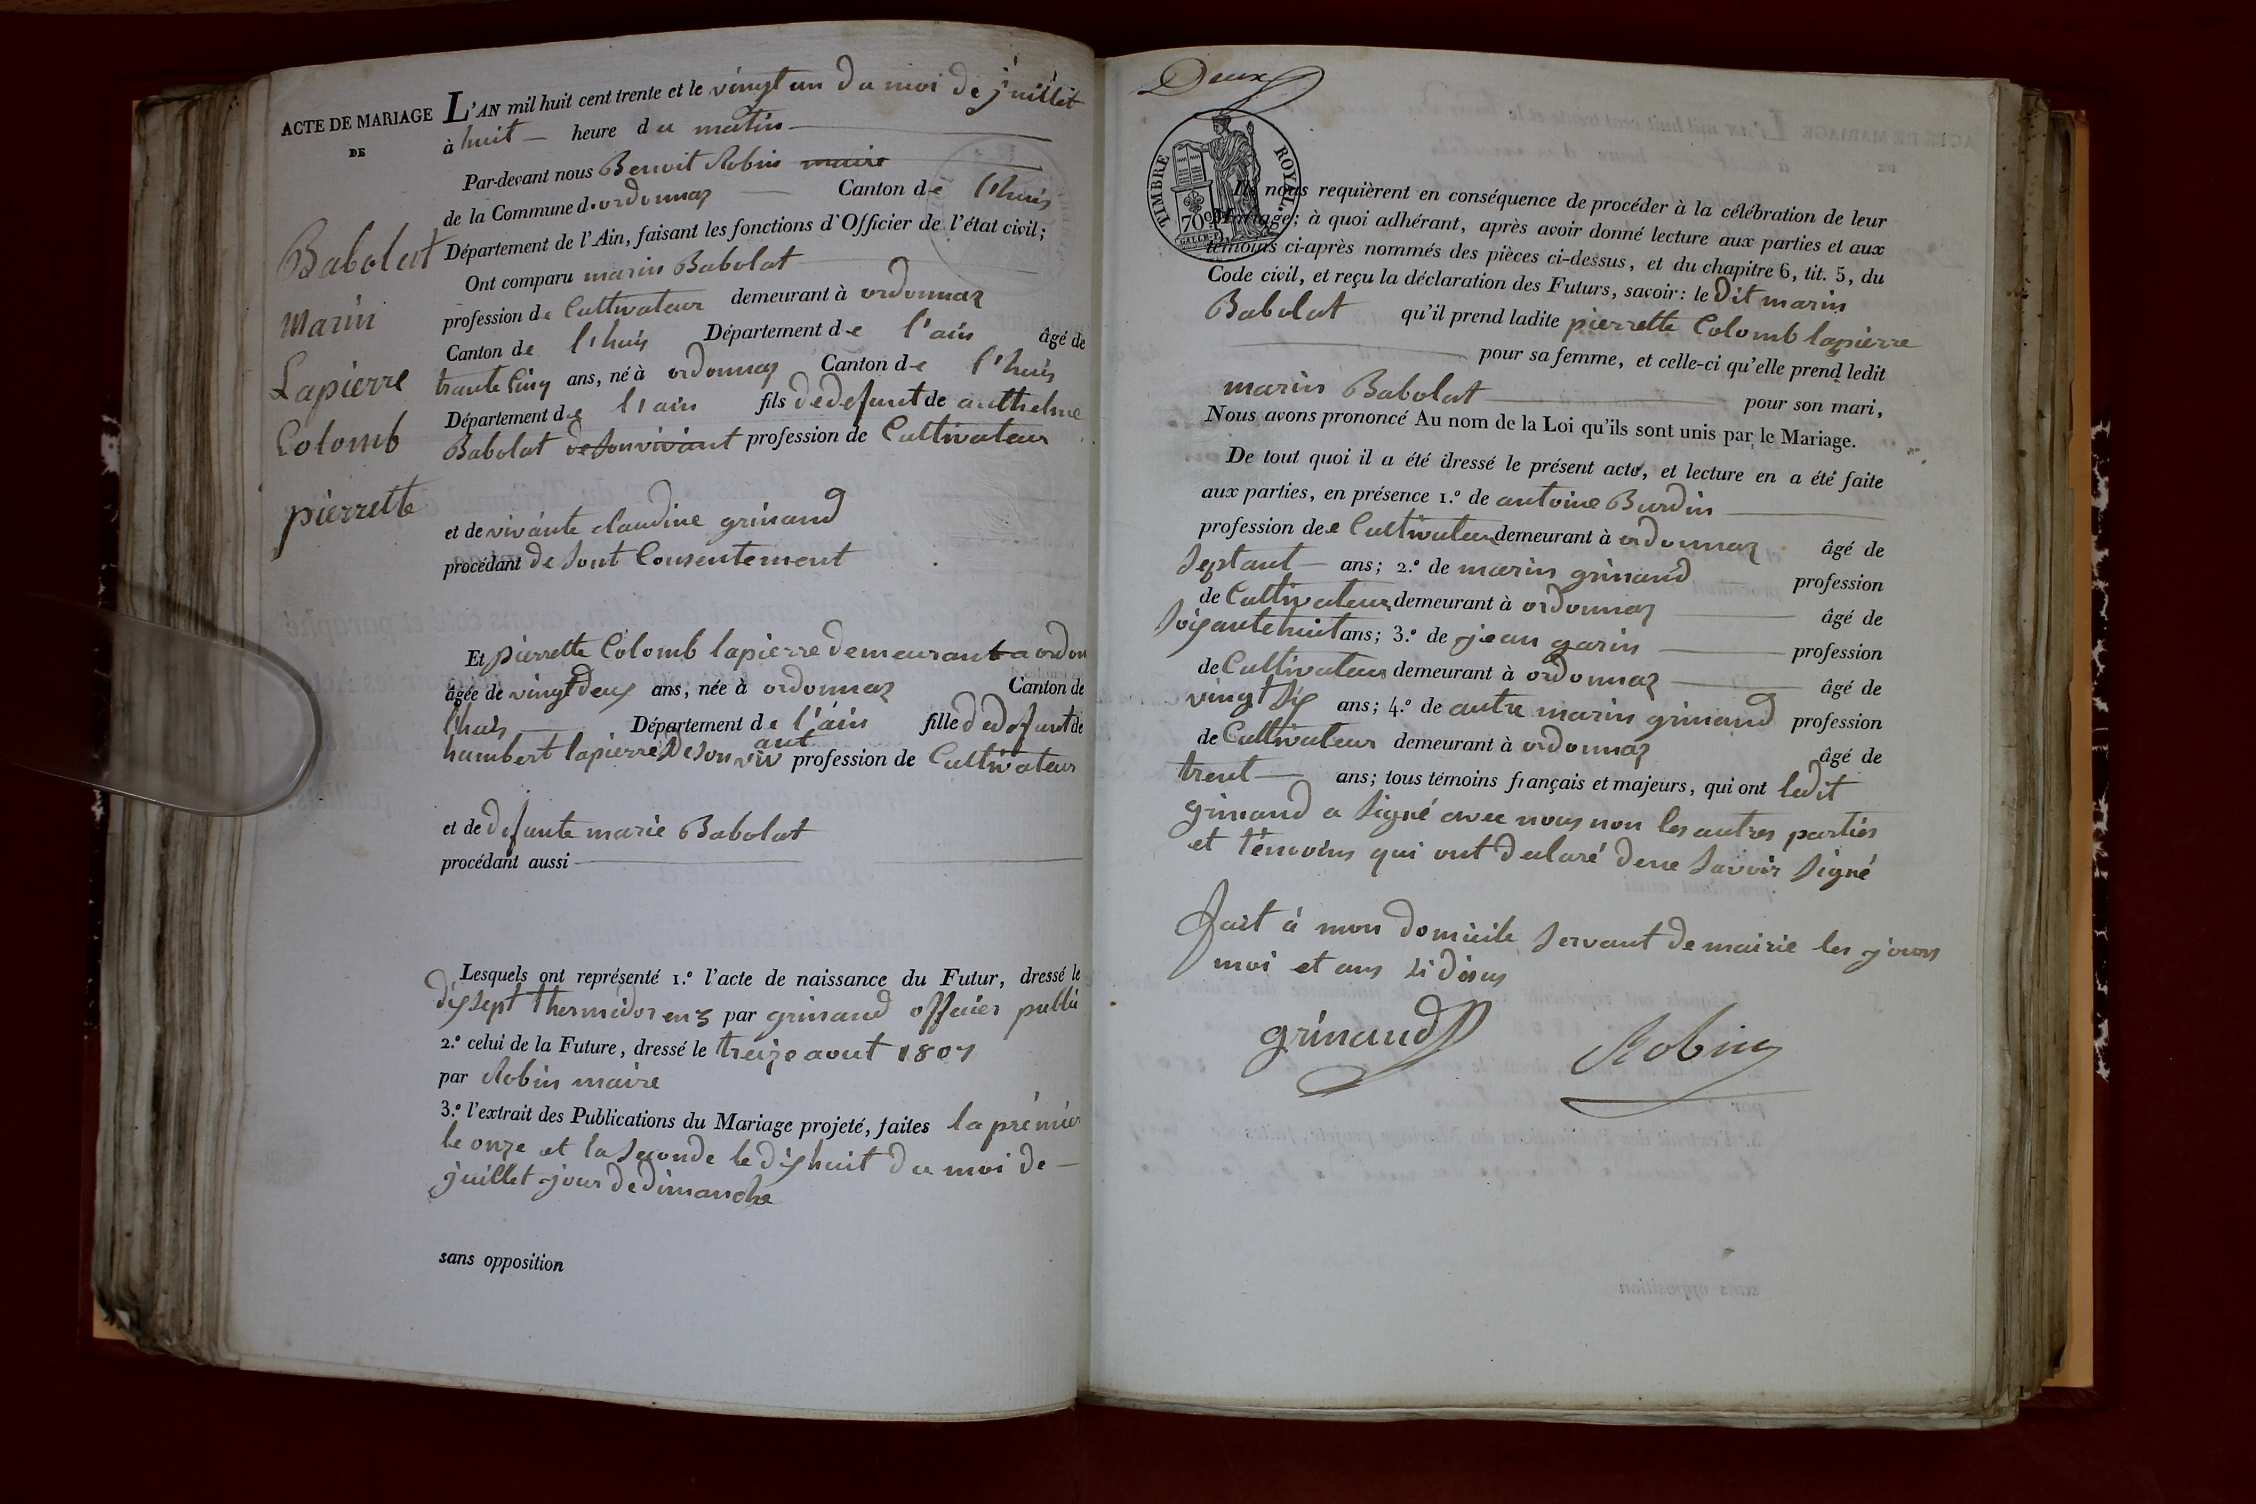 ACTE DE MARIAGE
DE
Babolat
Marin
Lapierre
Colomb
pierrette
L'AN mil huit cent trente et le vingt un du moi de juillet
à huit heure du matin
Par-devant nous Benoit Robin maire
de la Commune d'ordonnaz Canton de l'huis
Département de l'Ain, faisant les fonctions d'Officier de l'état civil;
Ont comparu marin Babolat
profession de Cultivateur demeurant à ordonnaz
Canton de l'huis Département de l'ain âgé de
trante cinq ans, né à ordonnaz Canton de l'huis
Département de l'ain fils de defunt de anthelme
Babolat de son vivant profession de Cultivateur
et de vivante claudine grinand
procédant de sont Consentement
Et pierrette Colomb lapierre demeurant a ordon
âgée de vingt deux ans, née à ordonnaz Canton de
l'huis Département de l'ain fille de defunt de
humbert lapierre de son vivant profession de Cultivateur
et de defunte marie Babolat
procédant aussi
Lesquels ont représenté 1.º l'acte de naissance du Futur, dressé le
dix sept thermidor en 3 par grinand officier public
2.º celui de la Future, dressé le treize aout 1807
par Robin maire
3.º l'extrait des Publications du Mariage projeté, faites la prémier
le onze et la seconde le dix huit du moi de
juillet jour de dimanche
sans opposition
Deux
TIMBRE ROYAL.
70
Ils nous requièrent en conséquence de procéder à la célébration de leur
Mariage; à quoi adhérant, après avoir donné lecture aux parties et aux
témoins ci-après nommés des pièces ci-dessus, et du chapitre 6, tit. 5, du
Code civil, et reçu la déclaration des Futurs, savoir: le dit marin
Babolat qu'il prend ladite pierrette Colomb lapierre
pour sa femme, et celle-ci qu'elle prend ledit
marin Babolat pour son mari,
Nous avons prononcé Au nom de la Loi qu'ils sont unis par le Mariage.
De tout quoi il a été dressé le présent acte, et lecture en a été faite
aux parties, en présence 1.º de antoine Burdin
profession de Cultivateur demeurant à ordonnaz âgé de
septant ans; 2.º de marin grinand profession
de Cultivateur demeurant à ordonnaz âgé de
soixante huit ans; 3.º de jean garin profession
de Cultivateur demeurant à ordonnaz âgé de
vingt six ans; 4.º de autre marin grinand profession
de Cultivateur demeurant à ordonnaz âgé de
trent ans; tous témoins français et majeurs, qui ont ledit
grinand a signé avec nous non les autres parties
et témoins qui ont declaré de ne savoir signé
fait à mon domicile servant de mairie les jours
moi et ans si disus
grinand Robin